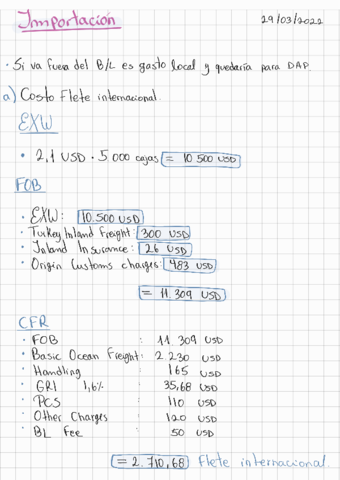 Importación
29/03/2022
• Si va fuera del B/L es gasto local y quedaría para DAP.
a) Costo Flete internacional.
EXW
• 2,1 USD · 5.000 cajas = 10.500 USD
FOB
• EXW: 10.500 USD
• Turkey Inland Freight: 300 USD
• Inland Insurance: 26 USD
• Origin Customs charges: 483 USD
= 11.309 USD
CFR
• FOB : 11.309 USD
• Basic Ocean Freight: 2.230 USD
• Handling : 165 USD
• GRI 1,6% : 35,68 USD
• PCS : 110 USD
• Other Charges : 120 USD
• BL Fee : 50 USD
= 2.710,68 Flete internacional.